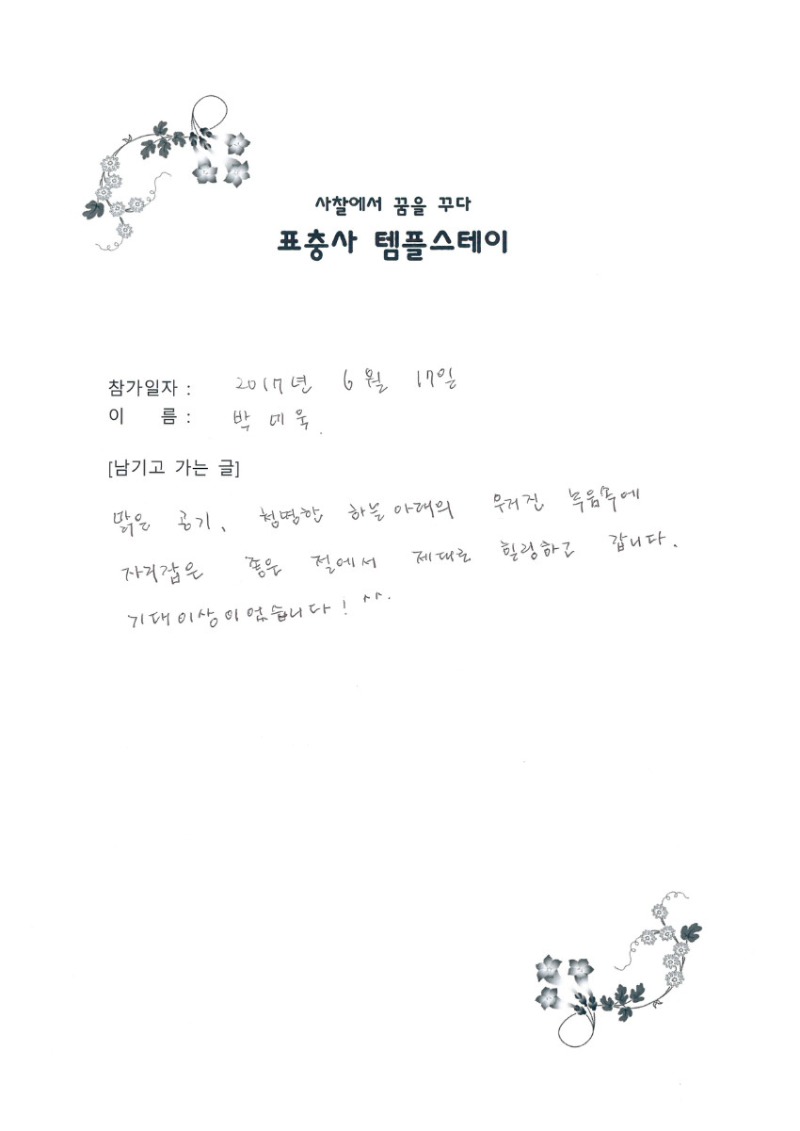 사찰에서 꿈을 꾸다
표충사 템플스테이
참가일자 : 2017년 6월 17일
이 름 : 박 예 욱.
[남기고 가는 글]
맑은 공기, 청명한 하늘 아래의 우거진 녹음속에
자리잡은 좋은 절에서 제대로 힐링하고 갑니다.
기대이상이었습니다! ^^.